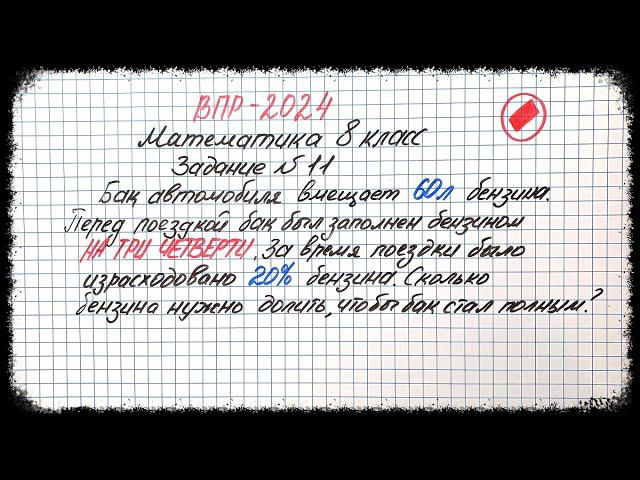 ВПР-2024
Математика 8 класс
Задание №11
Бак автомобиля вмещает 60л бензина.
Перед поездкой бак был заполнен бензином
НА ТРИ ЧЕТВЕРТИ. За время поездки было
израсходовано 20% бензина. Сколько
бензина нужно долить, чтобы бак стал полным?